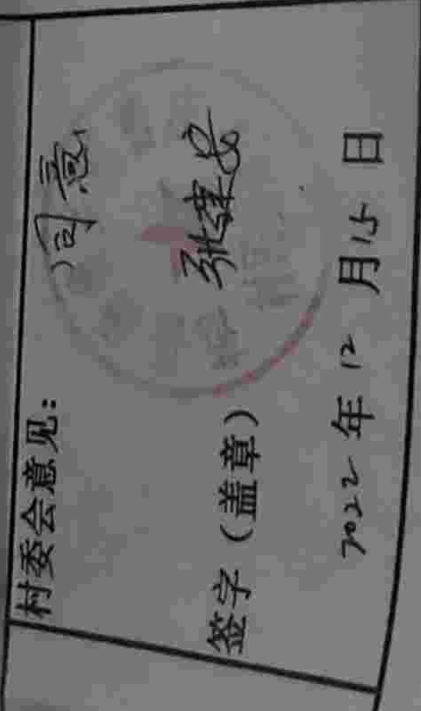 村委会意见：
同意
签字（盖章） 张建安
2022年12月15日